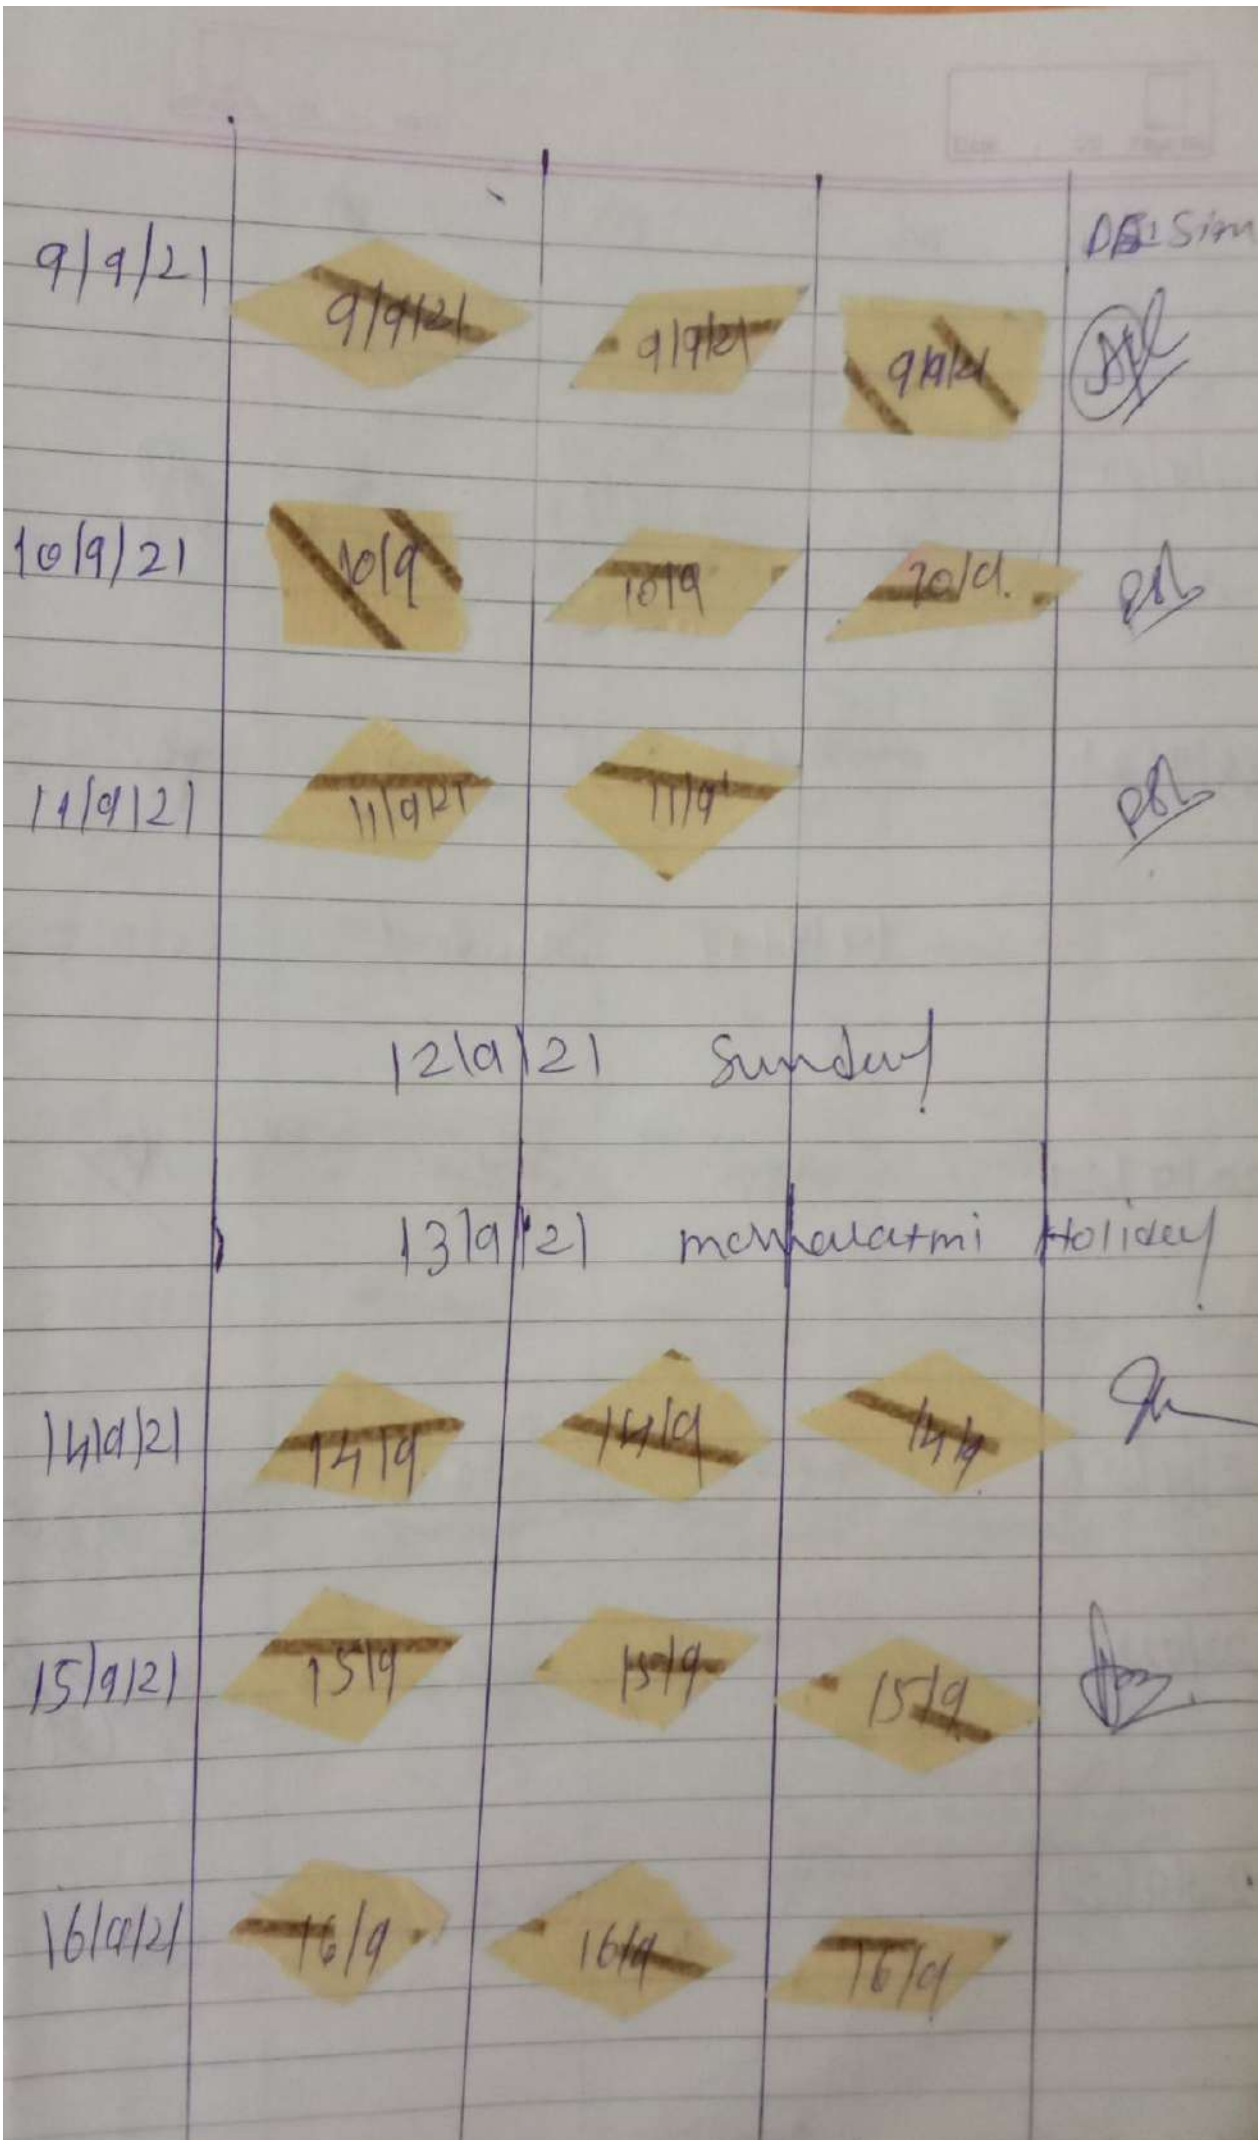 Sign
9/9/21 9/9/21 9/9/21 9/9/21
10/9/21 10/9 10/9 10/9.
11/9/21 11/9/21 11/9
12/9/21 Sunday
13/9/21 Holiday
14/9/21 14/9 14/9 14/9
15/9/21 15/9 15/9 15/9
16/9/21 16/9 16/9 16/9